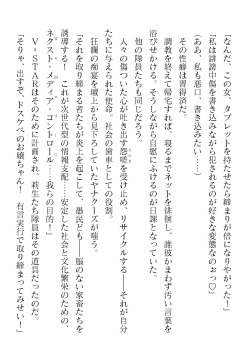 「なんだ、この女、タブレットを持たせたら締まりが倍になりやがった！」
「私は誹謗中傷を書き込みながら犯されるのが好きな変態なのぉっ♡」
（ああ、私も悪口、書き込みたい……）
その性癖は習得済だ。
調教を終えて帰宅すれば、寝るまでネットを徘徊し、誰彼かまわず汚い言葉を
浴びせかける。そうしながら自慰にふけるのが日課となっていた。
他の隊員たちも同じだろう。
人々の傷ついた心が吐き出す怨嗟を受け止め、リサイクルする――それが自分
たちに与えられた使命。社会の歯車としての役割。
狂瀾の痴宴を壇上から見下ろしていたヤナクーズが嗤う。
「それを取り締まる者たちが炎上を起こして、愚民ども――脳のない家畜たちを
誘導する！　これが次世代型の情報支配……安定した社会と文化繁栄のための、
ネクスト・メディア・コントロール……我らの目的！」
V・STARはそのために計画され、莉生たち隊員はその道具だったのだ。
「そりゃ、出すぞ、ドスケベのお嬢ちゃん！　有言実行で取り締まってみせい！」